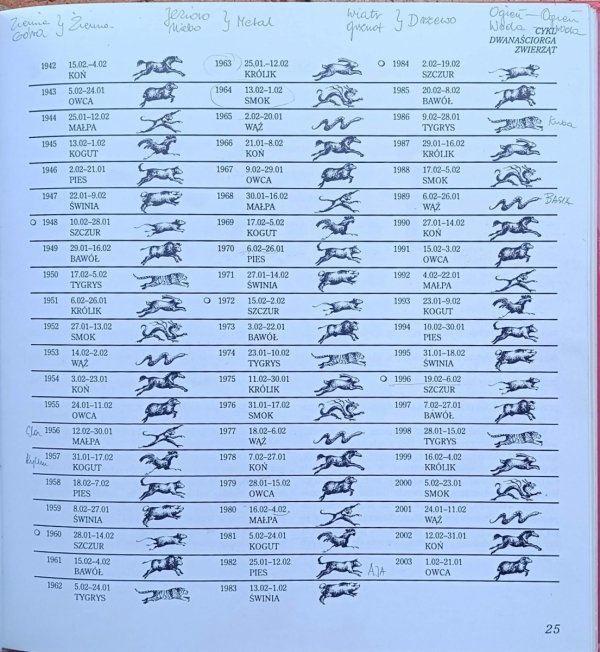 Ziemia } Ziemia
Góra
Jezioro } Metal
Niebo
Wiatr } Drzewo
Grzmot
Ogień — Ogień
Woda — Woda
CYKL
DWANAŚCIORGA
ZWIERZĄT
1942 15.02.–4.02
KOŃ
1943 5.02–24.01
OWCA
1944 25.01–12.02
MAŁPA
1945 13.02–1.02
KOGUT
1946 2.02–21.01
PIES
1947 22.01–9.02
ŚWINIA
1948 10.02–28.01
SZCZUR
1949 29.01–16.02
BAWÓŁ
1950 17.02–5.02
TYGRYS
1951 6.02–26.01
KRÓLIK
1952 27.01–13.02
SMOK
1953 14.02–2.02
WĄŻ
1954 3.02–23.01
KOŃ
1955 24.01–11.02
OWCA
1956 12.02–30.01
MAŁPA
1957 31.01–17.02
KOGUT
1958 18.02–7.02
PIES
1959 8.02–27.01
ŚWINIA
1960 28.01–14.02
SZCZUR
1961 15.02–4.02
BAWÓŁ
1962 5.02–24.01
TYGRYS
1963 25.01–12.02
KRÓLIK
1964 13.02–1.02
SMOK
1965 2.02–20.01
WĄŻ
1966 21.01–8.02
KOŃ
1967 9.02–29.01
OWCA
1968 30.01–16.02
MAŁPA
1969 17.02–5.02
KOGUT
1970 6.02–26.01
PIES
1971 27.01–14.02
ŚWINIA
1972 15.02–2.02
SZCZUR
1973 3.02–22.01
BAWÓŁ
1974 23.01–10.02
TYGRYS
1975 11.02–30.01
KRÓLIK
1976 31.01–17.02
SMOK
1977 18.02–6.02
WĄŻ
1978 7.02–27.01
KOŃ
1979 28.01–15.02
OWCA
1980 16.02–4.02
MAŁPA
1981 5.02–24.01
KOGUT
1982 25.01–12.02
PIES
AJA
1983 13.02–1.02
ŚWINIA
1984 2.02–19.02
SZCZUR
1985 20.02–8.02
BAWÓŁ
1986 9.02–28.01
TYGRYS
Kuba
1987 29.01–16.02
KRÓLIK
1988 17.02–5.02
SMOK
1989 6.02–26.01
WĄŻ
1990 27.01–14.02
KOŃ
1991 15.02–3.02
OWCA
1992 4.02–22.01
MAŁPA
1993 23.01–9.02
KOGUT
1994 10.02–30.01
PIES
1995 31.01–18.02
ŚWINIA
1996 19.02–6.02
SZCZUR
1997 7.02–27.01
BAWÓŁ
1998 28.01–15.02
TYGRYS
1999 16.02–4.02
KRÓLIK
2000 5.02–23.01
SMOK
2001 24.01–11.02
WĄŻ
2002 12.02–31.01
KOŃ
2003 1.02–21.01
OWCA
25